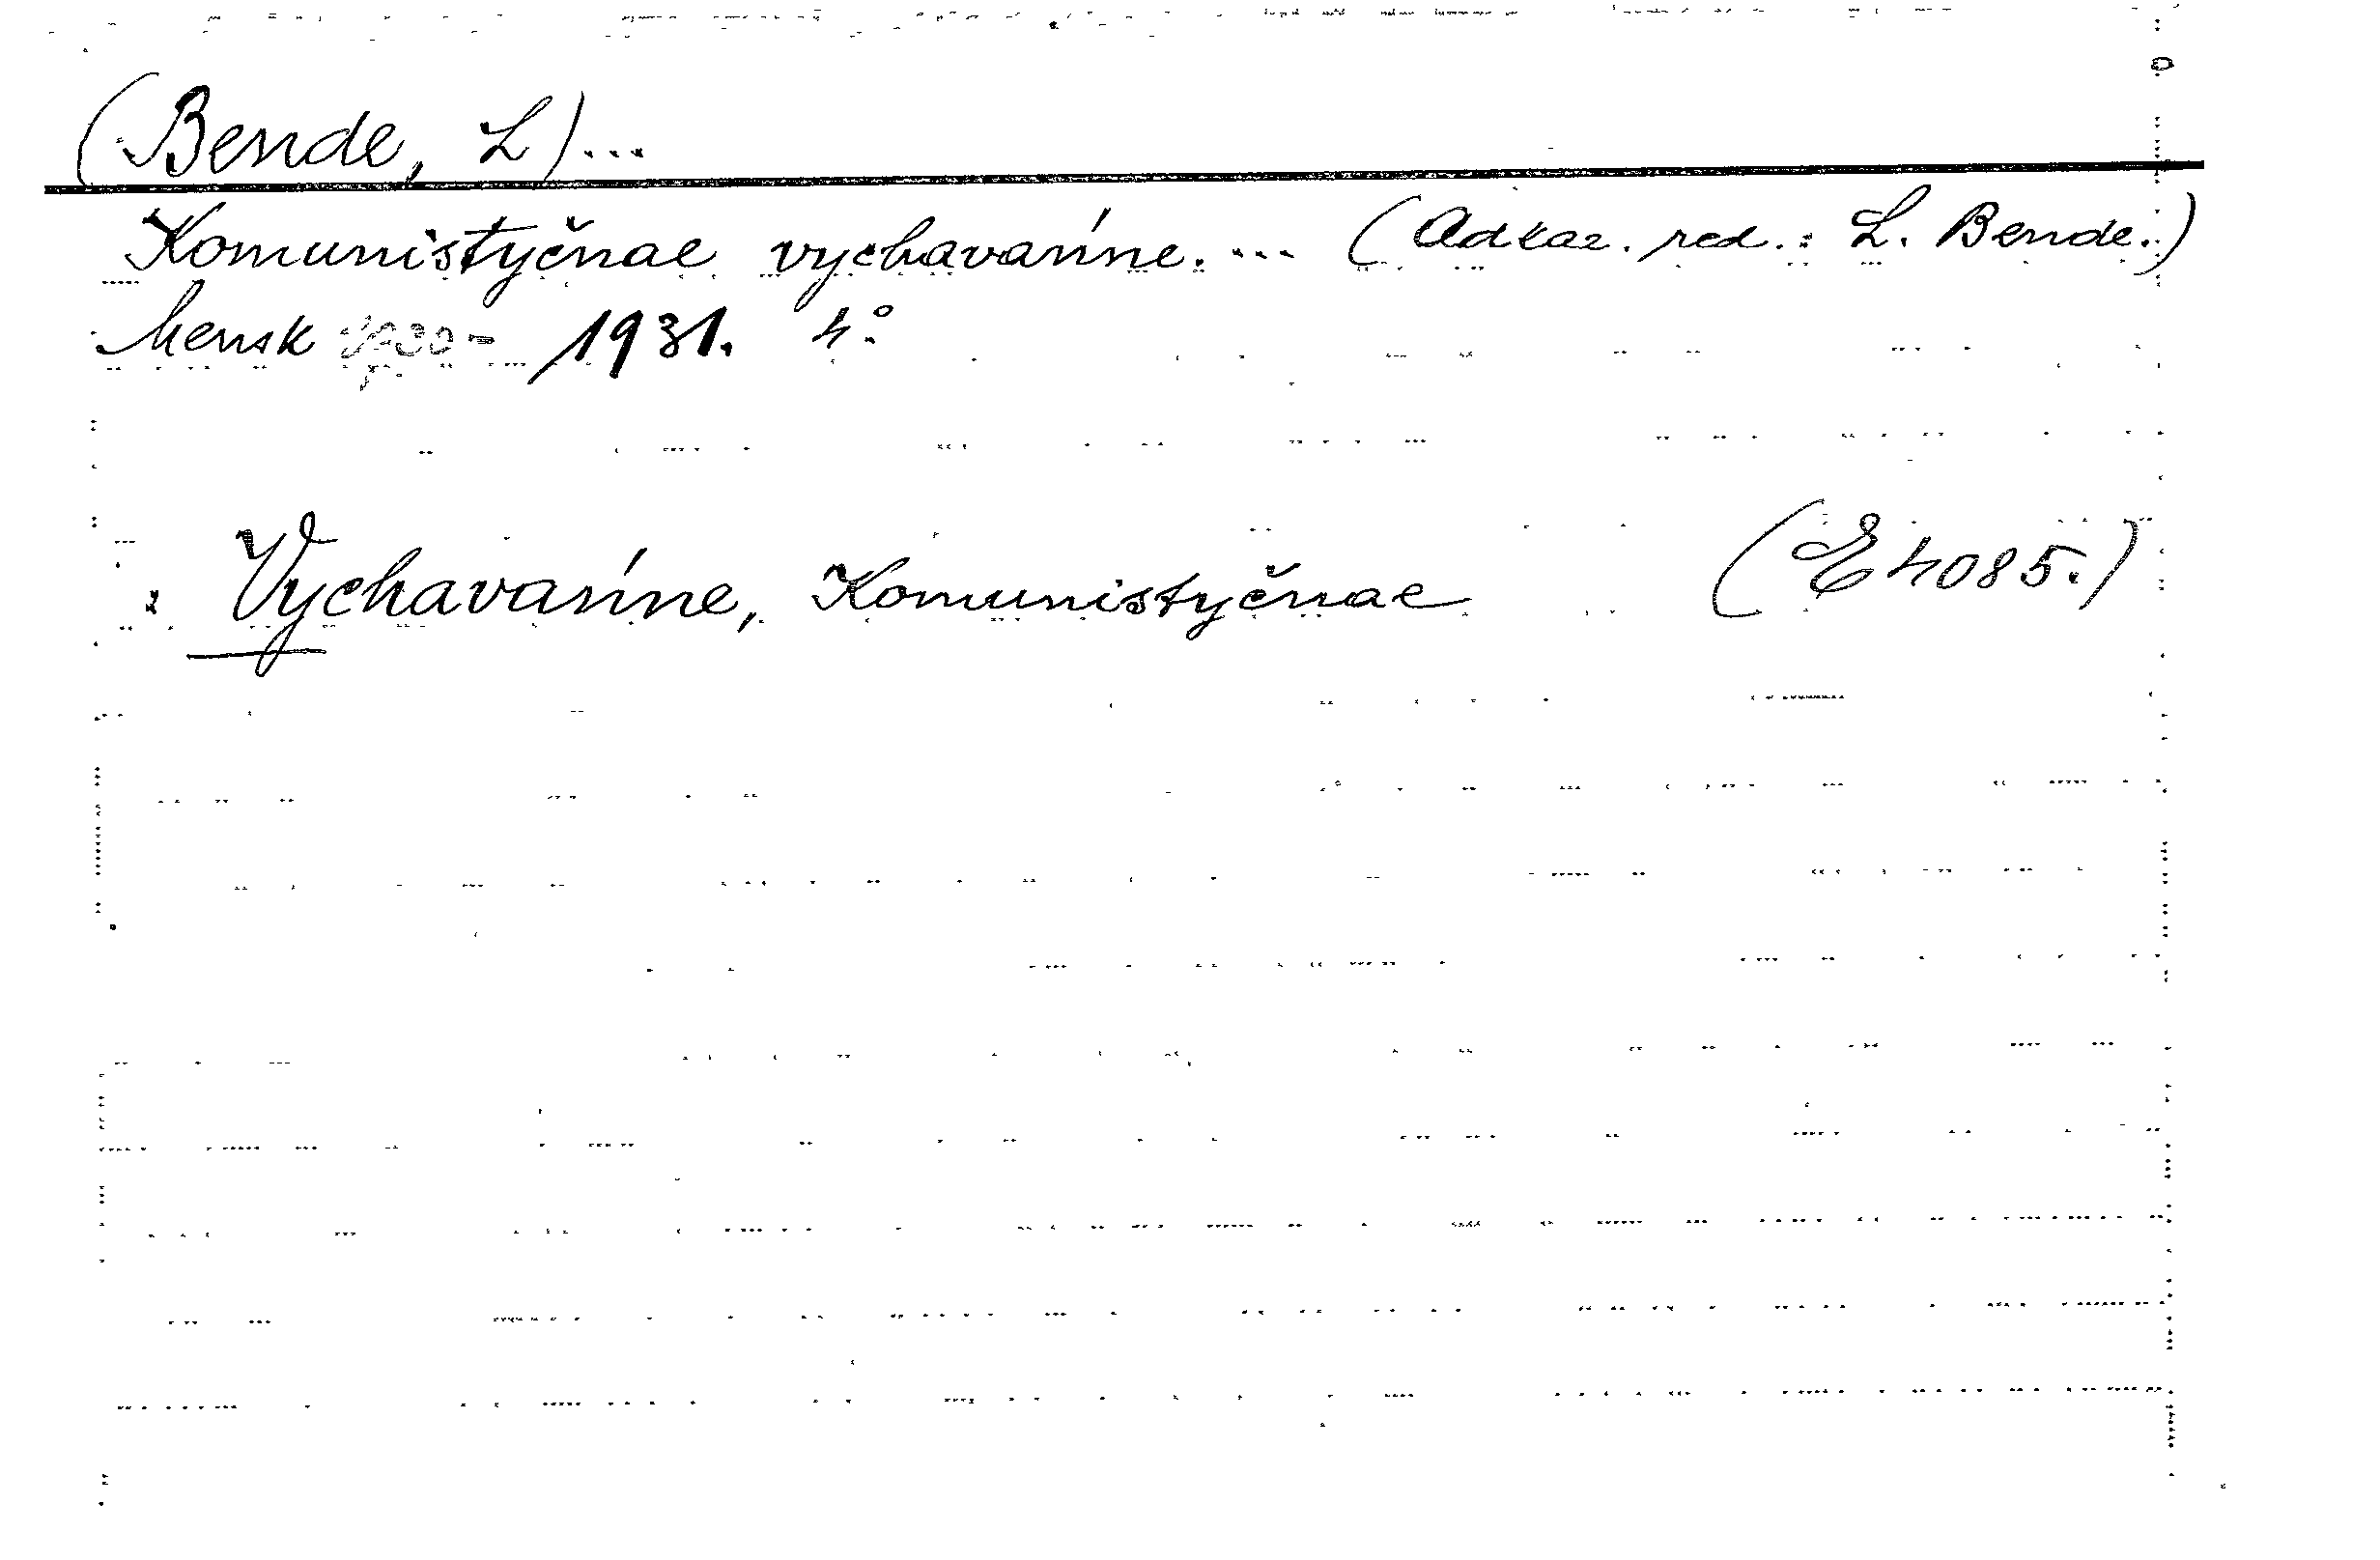 (Bende, L)...
Komunistyčnae vychavańne. ... (Adkaz. red.: L. Bende.)
Mensk 1930- 1931. 4°.
: Vychavańne, Komunistyčnae (E 4085.)